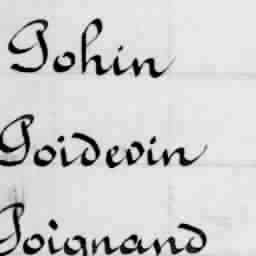 Gohin
Goidevin
Goignand